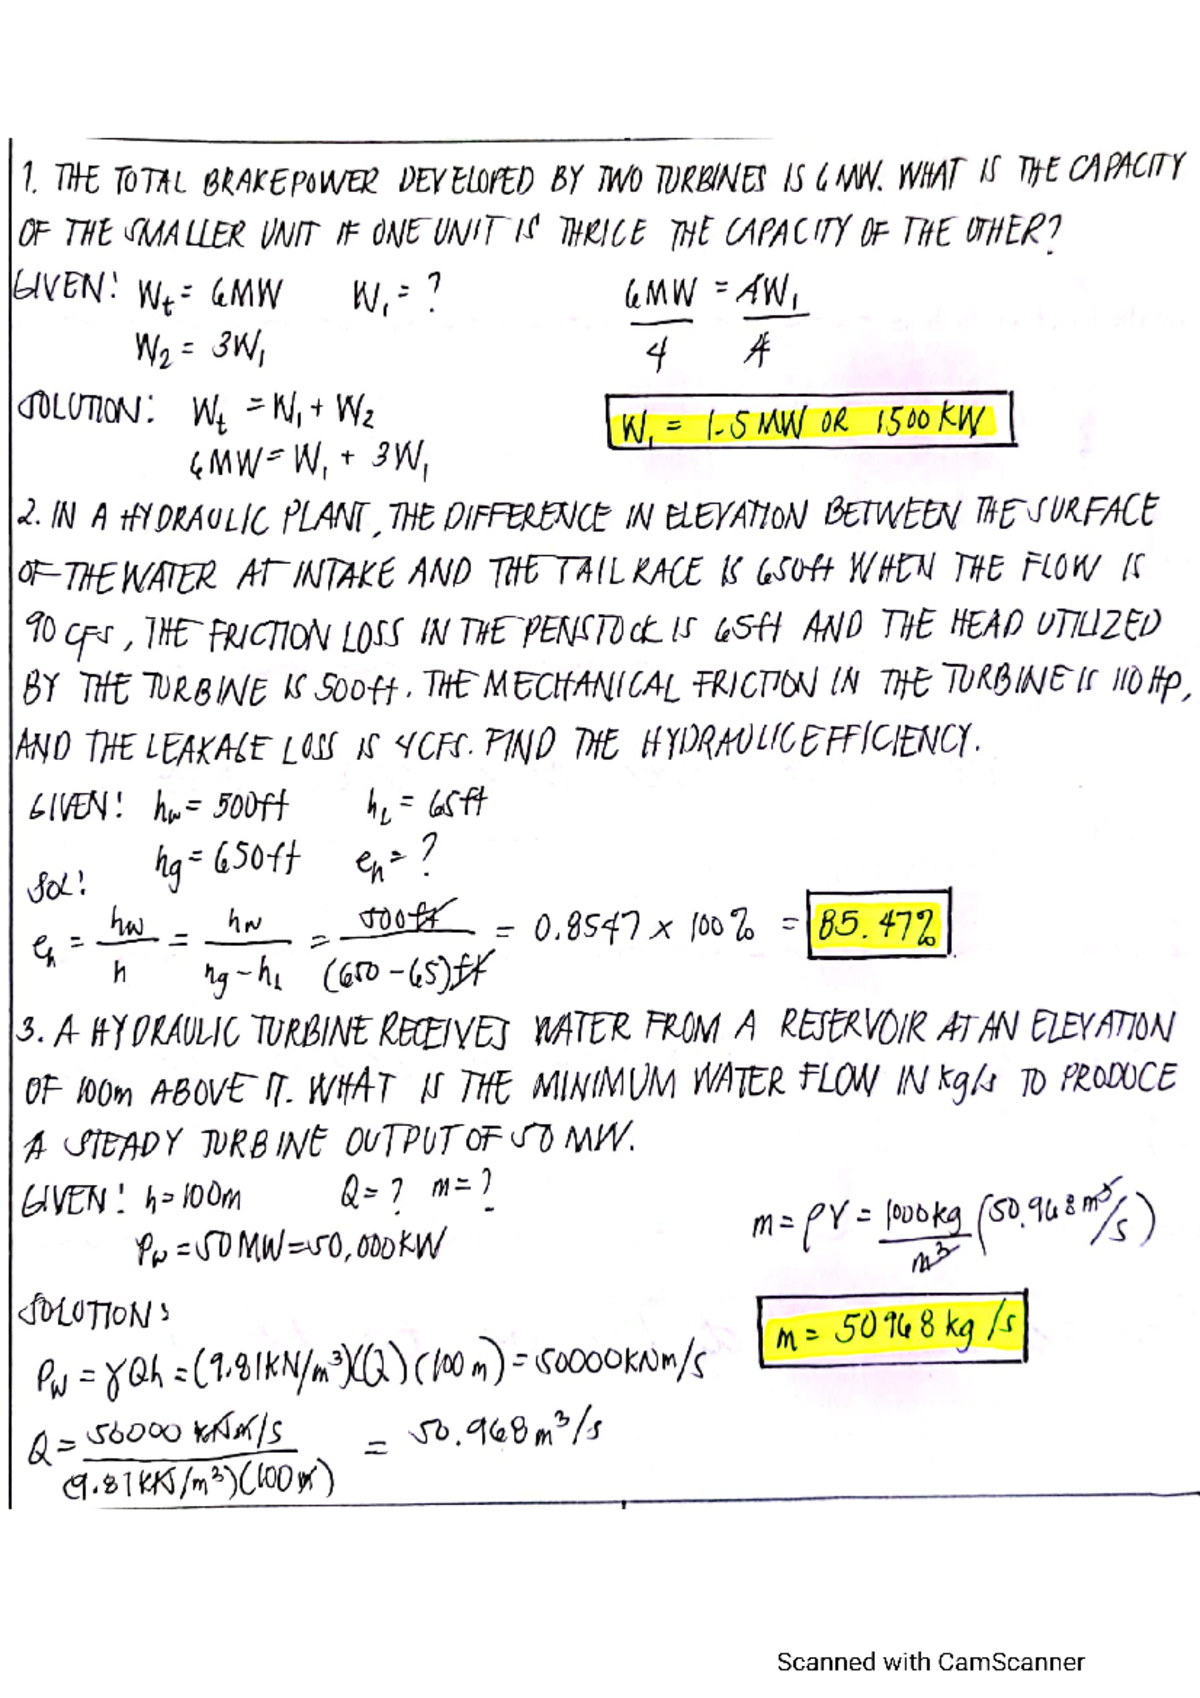 1. THE TOTAL BRAKEPOWER DEVELOPED BY TWO TURBINES IS 6 MW. WHAT IS THE CAPACITY
OF THE SMALLER UNIT IF ONE UNIT IS THRICE THE CAPACITY OF THE OTHER?
GIVEN: Wt = 6MW W₁ = ? 6MW = 4W₁
W₂ = 3W₁ 4 4
SOLUTION: Wt = W₁ + W₂ W₁ = 1.5 MW OR 1500 KW
6MW = W₁ + 3W₁
2. IN A HYDRAULIC PLANT, THE DIFFERENCE IN ELEVATION BETWEEN THE SURFACE
OF THE WATER AT INTAKE AND THE TAILRACE IS 650ft WHEN THE FLOW IS
90 CFS, THE FRICTION LOSS IN THE PENSTOCK IS 65ft AND THE HEAD UTILIZED
BY THE TURBINE IS 500ft. THE MECHANICAL FRICTION IN THE TURBINE IS 110 Hp,
AND THE LEAKAGE LOSS IS 4CFS. FIND THE HYDRAULIC EFFICIENCY.
GIVEN: hw = 500ft hL = 65ft
hg = 650ft eh = ?
SOL:
eh = hw / h = hw / hg - hL = 500ft / (650 - 65)ft = 0.8547 x 100% = 85.47%
3. A HYDRAULIC TURBINE RECEIVES WATER FROM A RESERVOIR AT AN ELEVATION
OF 100m ABOVE IT. WHAT IS THE MINIMUM WATER FLOW IN kg/s TO PRODUCE
A STEADY TURBINE OUTPUT OF 50 MW.
GIVEN: h = 100m Q = ? m = ?
Pw = 50 MW = 50,000KW
m = ρV = 1000kg / m³ (50.968 m³/s)
SOLUTION: m = 50968 kg/s
Pw = γQh = (9.81KN/m³)(Q)(100m) = 50000KNm/s
Q = 50000 KNm/s / (9.81KN/m³)(100m) = 50.968m³/s
Scanned with CamScanner